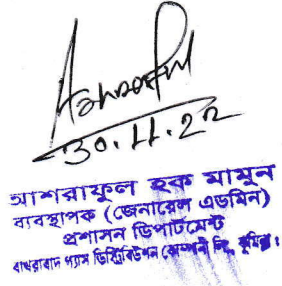 Ashraful
30.11.22
আশরাফুল হক মামুন
ব্যবস্থাপক (জেনারেল এডমিন)
প্রশাসন ডিপার্টমেন্ট
বাখরাবাদ গ্যাস ডিস্ট্রিবিউশন কোম্পানী লিঃ, কুমিল্লা।